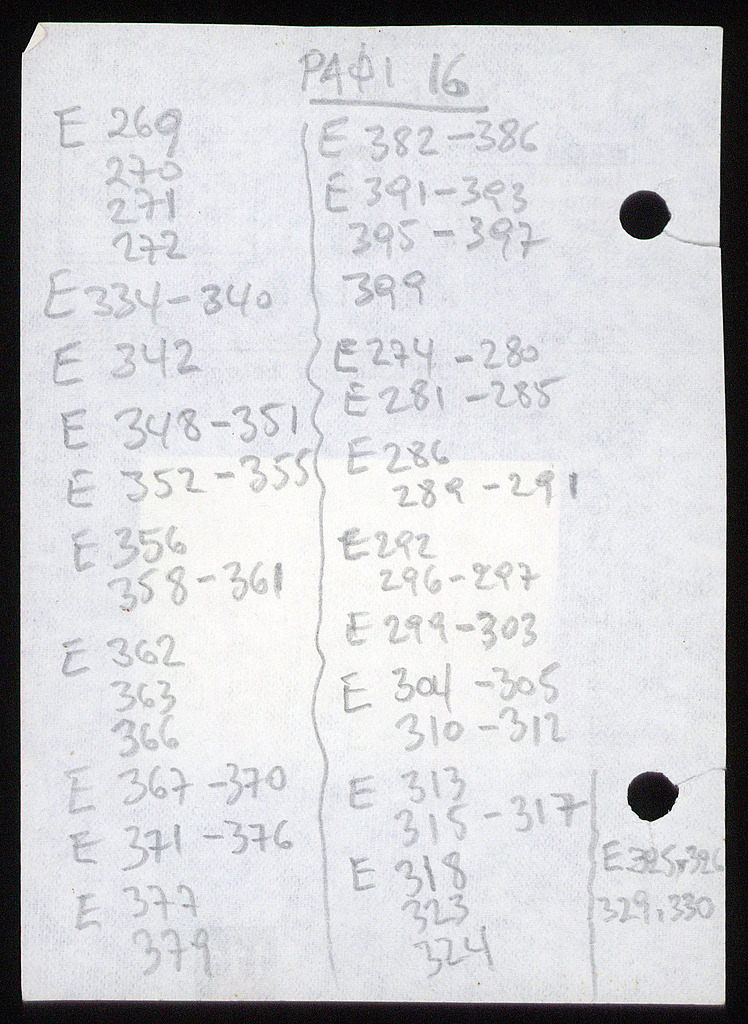 ΡΑΦΙ 16
E 269
270
271
272
E 334-340
E 342
E 348-351
E 352-355
E 356
358-361
E 362
363
366
E 367-370
E 371-376
E 377
379
E 382-386
E 391-393
395-397
399
E 274-280
E 281-285
E 286
289-291
E 292
296-297
E 299-303
E 304-305
310-312
E 313
315-317
E 318
323
324
E 325,326
329,330